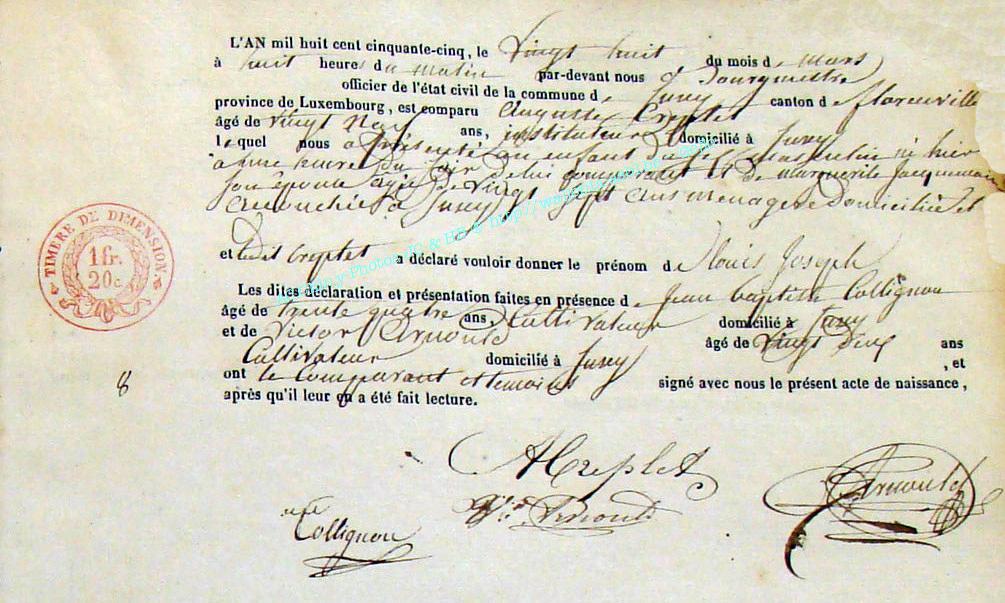 L'AN mil huit cent cinquante-cinq, le vingt huit du mois de mars
à huit heures du matin par-devant nous Bourgmestre
officier de l'état civil de la commune de Jusey canton de florenville
province de Luxembourg, est comparu Auguste Creplet
âgé de vingt neuf ans, instituteur domicilié à Jusey
lequel nous a présenté un enfant du masculin né hier
à une heure du soir de lui comparant et de Marguerite Jacquemin
son épouse agée de vingt sept ans menagere domiciliée et
accouchée à Jusey
et ledit Creplet a déclaré vouloir donner le prénom de louis Joseph
Les dites déclaration et présentation faites en présence de Jean Baptiste Collignon
âgé de trente quatre ans, Cultivateur domicilié à Jusey
et de Victor Arnould âgé de vingt deux ans
Cultivateur domicilié à Jusey, et
ont le Comparant et temoins signé avec nous le présent acte de naissance,
après qu'il leur en a été fait lecture.
TIMBRE DE DIMENSION
1 fr.
20 c.
8
ACreplet
Arnould
Arnould
Collignon